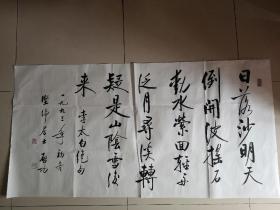 日落沙明天
倒開波摇石
動水縈回轻舟
泛月尋溪轉
疑是山陰雪後
来
李太白绝句
一九九三年初
堅净居士启功